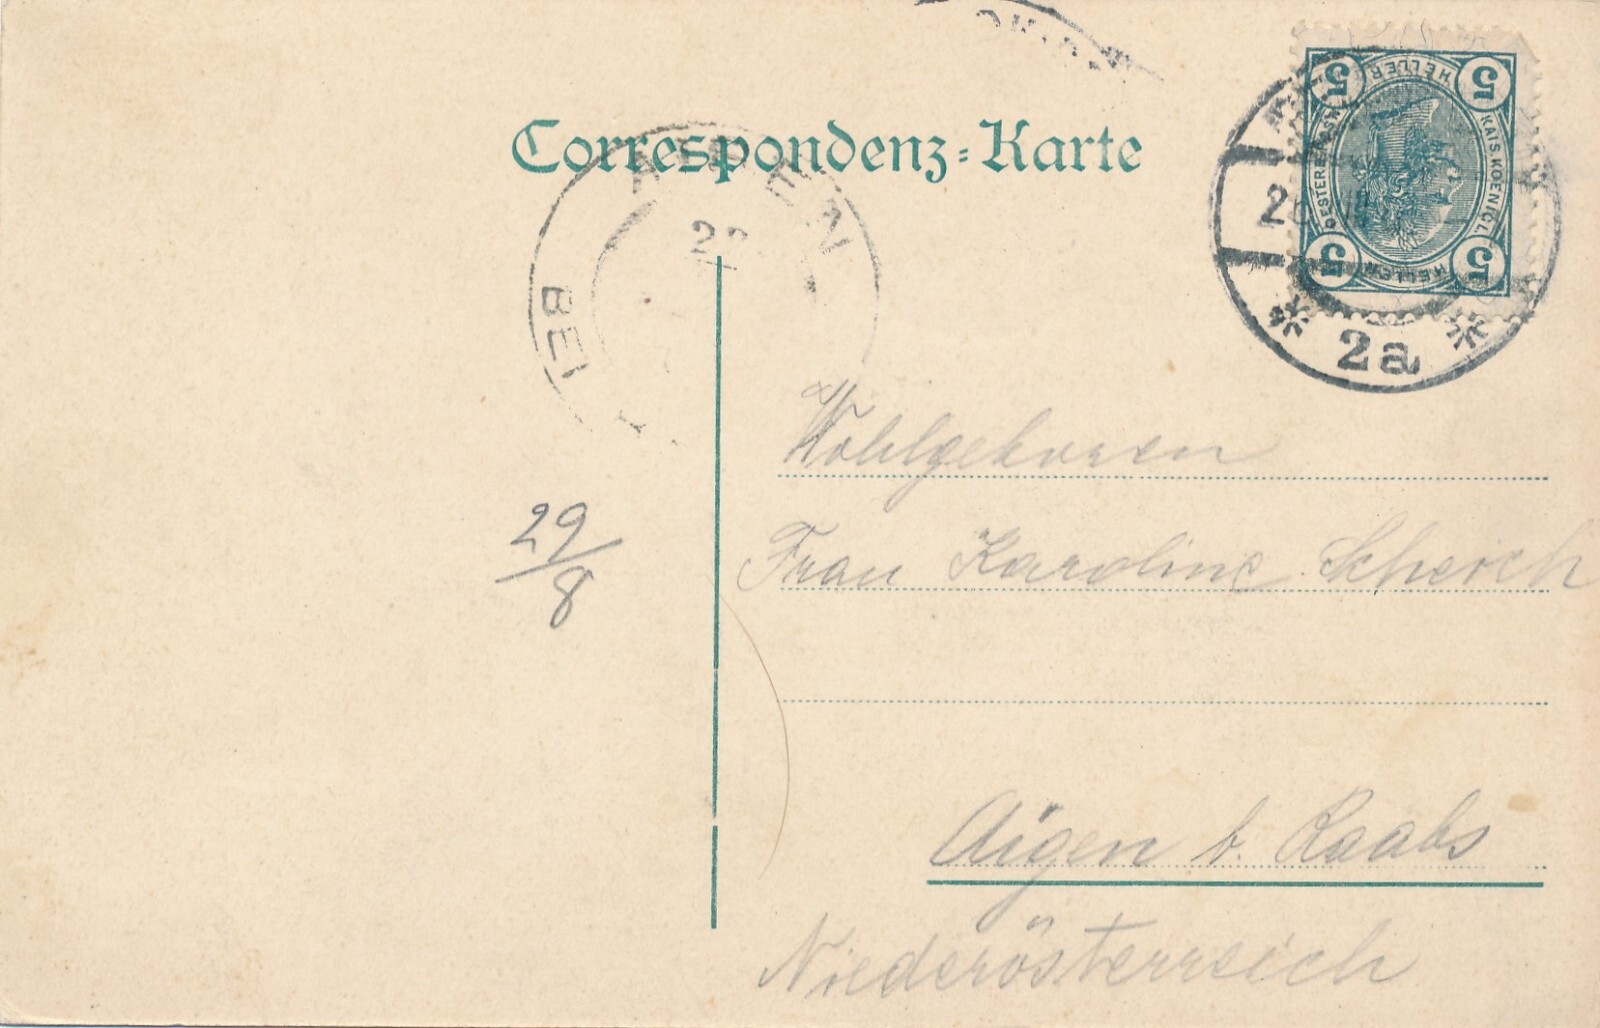 Correspondenz-Karte
5 HELLER 5
KAIS. KOENIGL.
OESTERR.
5 HELLER 5
2a
BEI
29/8
Wohlgeboren
Frau Karoline
Aigen b. Raabs
Niederösterreich